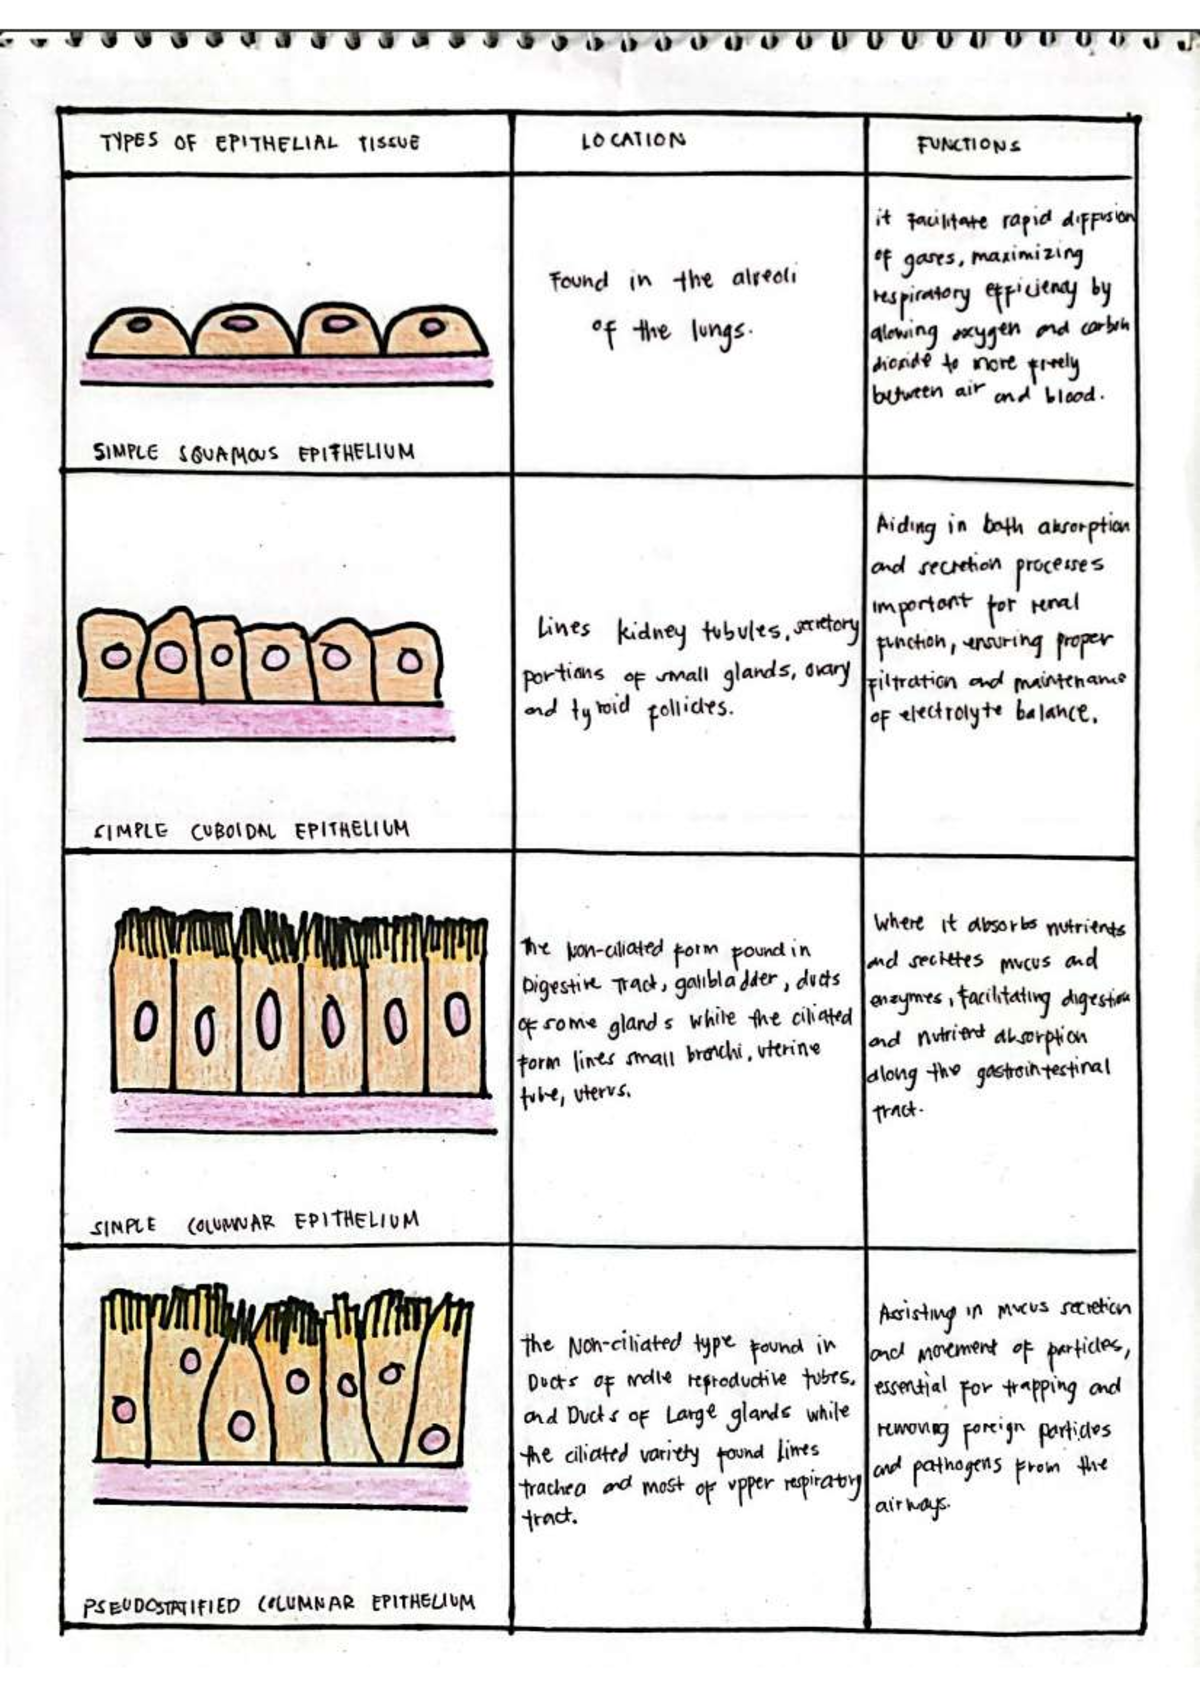 TYPES OF EPITHELIAL TISSUE
LOCATION
FUNCTIONS
SIMPLE SQUAMOUS EPITHELIUM
Found in the alveoli
of the lungs.
it facilitate rapid diffusion
of gases, maximizing
respiratory efficiency by
alowing oxygen and carbon
dioxide to more freely
between air and blood.
SIMPLE CUBOIDAL EPITHELIUM
Lines kidney tubules, secretory
portions of small glands, ovary
and tyroid follicles.
Aiding in both absorption
and secretion processes
important for renal
function, ensuring proper
filtration and maintenance
of electrolyte balance.
SIMPLE COLUMNAR EPITHELIUM
The Non-ciliated form found in
Digestive Tract, gallbladder, ducts
of some glands while the ciliated
form lines small bronchi, uterine
tube, uterus.
Where it absorbs nutrients
and secretes mucus and
enzymes, facilitating digestion
and nutrient absorption
along the gastrointestinal
tract.
PSEUDOSTATIFIED COLUMNAR EPITHELIUM
The Non-ciliated type found in
Ducts of male reproductive tubes,
and Ducts of Large glands while
the ciliated variety found Lines
trachea and most of upper respiratory
tract.
Assisting in mucus secretion
and movement of particles,
essential for trapping and
removing foreign particles
and pathogens from the
airways.